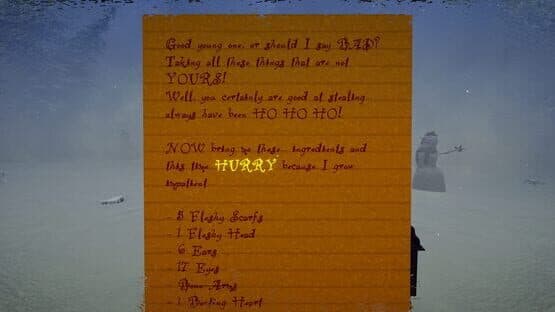 Good young one, or should I say BAD?
Taking all these things that are not
YOURS!
Well, you certainly are good at stealing
always have been HO HO HO!
NOW bring me these... ingredients and
this time HURRY because I grow
impatient
- 5 Fleshy Scarfs
- 1 Fleshy Head
6 Ears
17 Eyes
Bone Arms
- 1 Beating Heart